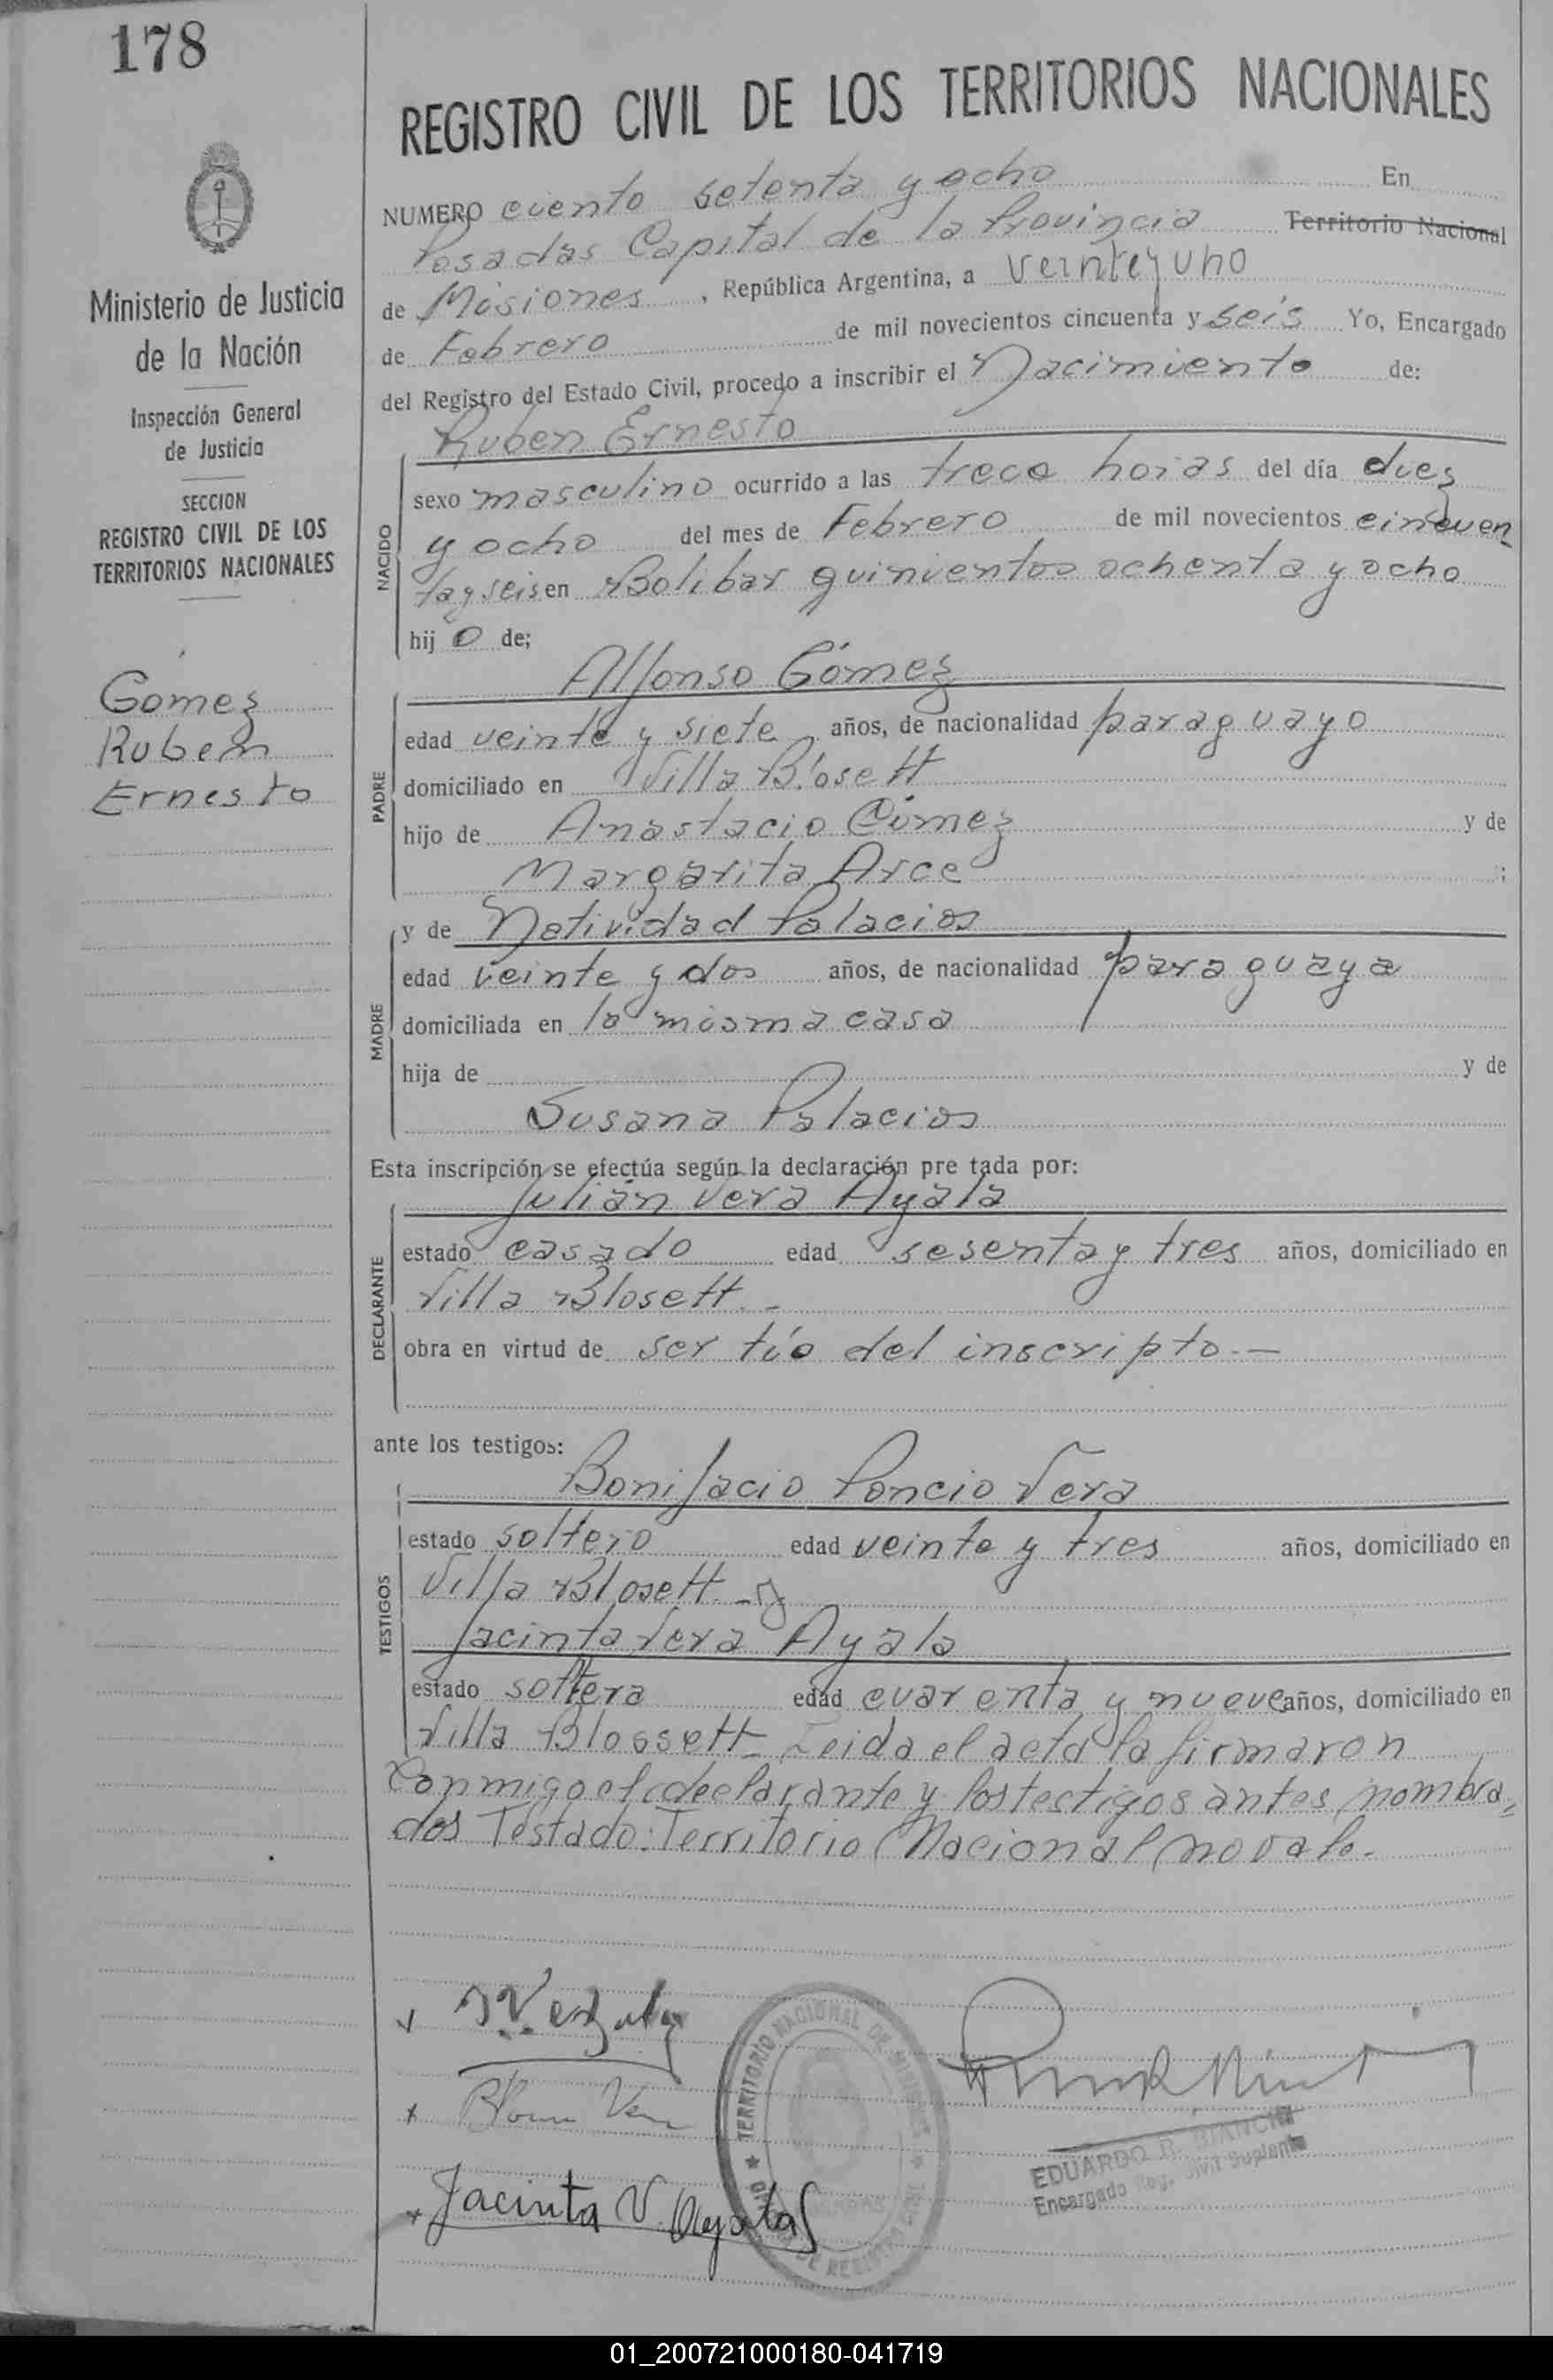 178
REGISTRO CIVIL DE LOS TERRITORIOS NACIONALES
Ministerio de Justicia
de la Nación
Inspección General
de Justicia
SECCION
REGISTRO CIVIL DE LOS
TERRITORIOS NACIONALES
Gomez
Ruben
Ernesto
NUMERO ciento setenta y ocho En
Posadas Capital de la Provincia Territorio Nacional
de Misiones, República Argentina, a veinteyuno
de Febrero de mil novecientos cincuenta y seis Yo, Encargado
del Registro del Estado Civil, procedo a inscribir el Nacimiento de:
Ruben Ernesto
NACIDO
sexo masculino ocurrido a las trece horas del día diez
y ocho del mes de Febrero de mil novecientos cincuen
tay seis en Bolibar quinientos ochenta y ocho
hij o de;
Alfonso Gómez
PADRE
edad veinte y siete años, de nacionalidad paraguayo
domiciliado en Villa Blosett
hijo de Anastacio Gómez y de
Margarita Arce ;
MADRE
y de Natividad Palacios
edad veinte y dos años, de nacionalidad paraguaya
domiciliada en la misma casa
hija de y de
Susana Palacios
Esta inscripción se efectúa según la declaración pre tada por:
Julián Vera Ayala
DECLARANTE
estado casado edad sesenta y tres años, domiciliado en
Villa Blosett.-
obra en virtud de ser tío del inscripto.-
ante los testigos:
Bonifacio Poncio Vera
TESTIGOS
estado soltero edad veinte y tres años, domiciliado en
Villa Blosett.- y
Jacinta Vera Ayala
estado soltera edad cuarenta y nueve años, domiciliado en
Villa Blossett- Leida el acta la firmaron
conmigo el declarante y los testigos antes nombra=
dos Testado: Territorio Nacional no vale.-
Jacinta V. Ayala
TERRITORIO NACIONAL DE MISIONES
EDUARDO R. BIANCHI
Encargado Reg. Civil Suplente
01_200721000180-041719